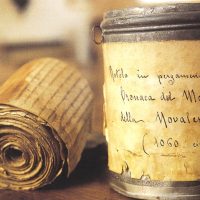 Rotolo in pergamena
Cronaca del Mo
della Novale
(1060.